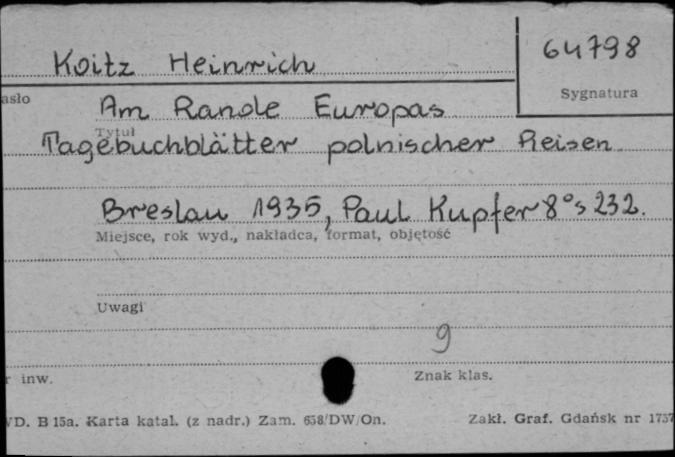 Koitz Heinrich
64798
asło
Sygnatura
Am Rande Europas
Tytuł
Tagebuchblätter polnischer Reisen
Breslau 1935, Paul Kupfer 8° s 232.
Miejsce, rok wyd., nakładca, format, objętość
Uwagi
9
r inw.
Znak klas.
VD. B 15a. Karta katal. (z nadr.) Zam. 658/DW/On.
Zakł. Graf. Gdańsk nr 1757